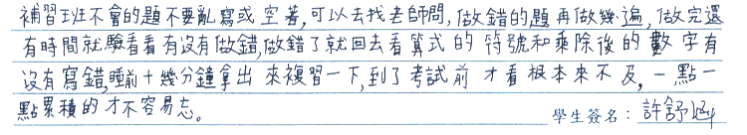 補習班不會的題不要亂寫或空著,可以去找老師問,做錯的題再做幾遍,做完還
有時間就驗看看有沒有做錯,做錯了就回去看算式的符號和乘除後的數字有
沒有寫錯,睡前十幾分鐘拿出來複習一下,到了考試前才看根本來不及,一點一
點累積的才不容易忘。
學生簽名:許舒涵